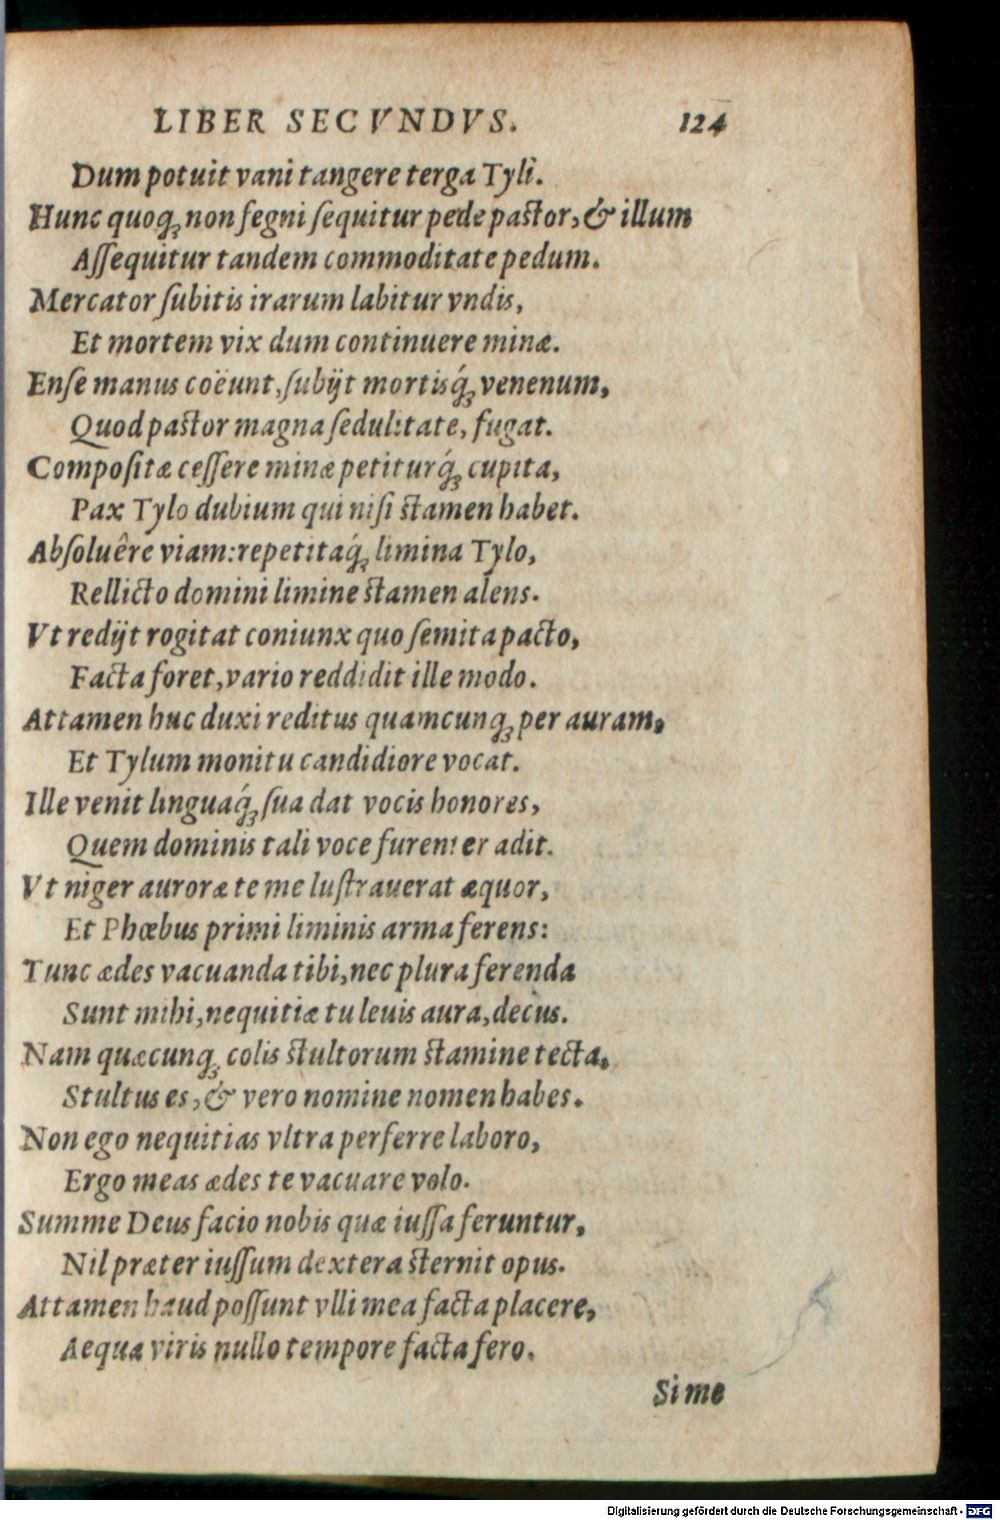 LIBER SECVNDVS. 124
Dum potuit vani tangere terga Tyli.
Hunc quoq; non segni sequitur pede pastor, & illum
Assequitur tandem commoditate pedum.
Mercator subitis irarum labitur vndis,
Et mortem vix dum continuere minæ.
Ense manus coëunt, subijt mortisq́; venenum,
Quod pastor magna sedulitate, fugat.
Compositæ cessere minæ petiturq́; cupita,
Pax Tylo dubium qui nisi stamen habet.
Absoluêre viam: repetitaq́; limina Tylo,
Rellicto domini limine stamen alens.
Vt redijt rogitat coniunx quo semita pacto,
Facta foret, vario reddidit ille modo.
Attamen huc duxi reditus quamcunq; per auram,
Et Tylum monitu candidiore vocat.
Ille venit linguaq́; sua dat vocis honores,
Quem dominis tali voce furenter adit.
Vt niger auroræ te me lustrauerat æquor,
Et Phœbus primi liminis arma ferens:
Tunc ædes vacuanda tibi, nec plura ferenda
Sunt mihi, nequitiæ tu leuis aura, decus.
Nam quæcunq; colis stultorum stamine tecta,
Stultus es, & vero nomine nomen habes.
Non ego nequitias vltra perferre laboro,
Ergo meas ædes te vacuare volo.
Summe Deus facio nobis quæ iussa feruntur,
Nil præter iussum dextera sternit opus.
Attamen haud possunt vlli mea facta placere,
Aequa viris nullo tempore facta fero.
Si me
Digitalisierung gefördert durch die Deutsche Forschungsgemeinschaft - DFG